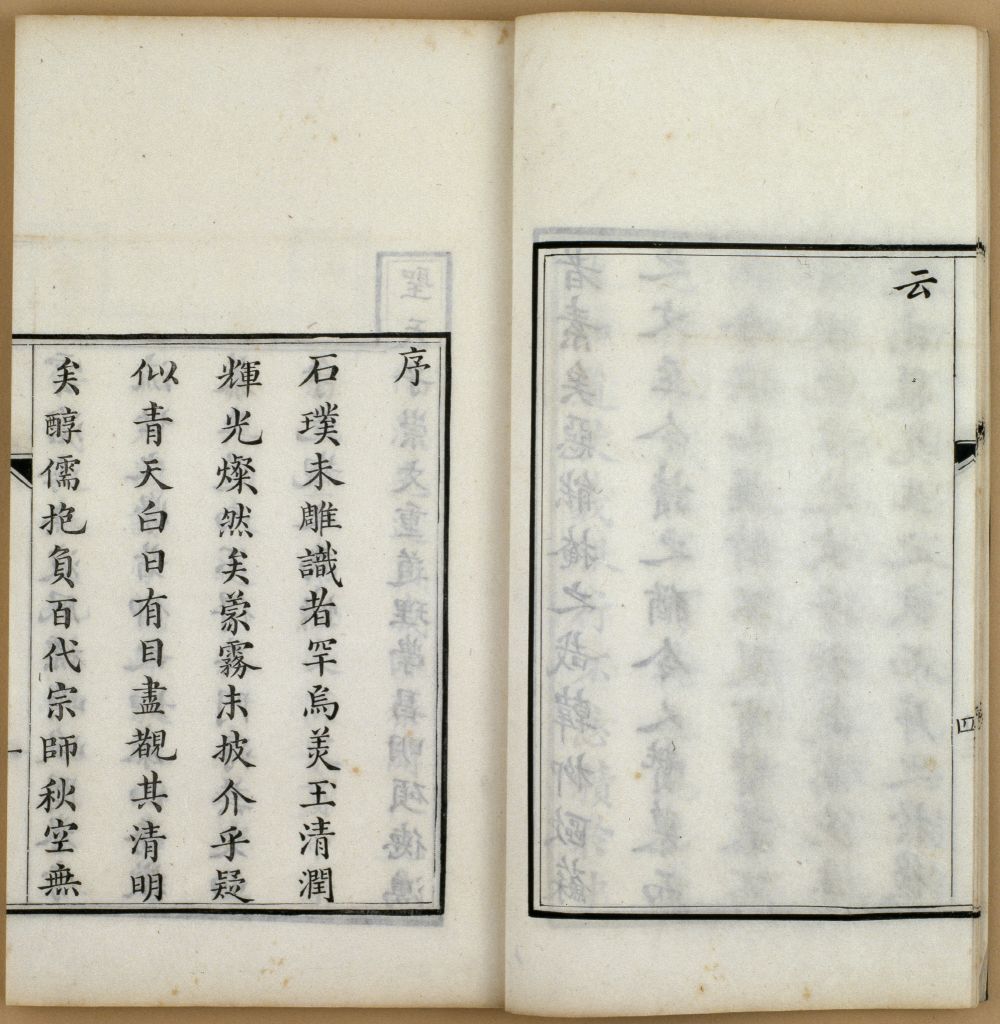 云
四
序
石璞未雕識者罕焉美玉清潤
輝光燦然矣蒙霧未披介乎疑
似青天白日有目盡覩其清明
矣醇儒抱負百代宗師秋空無
一